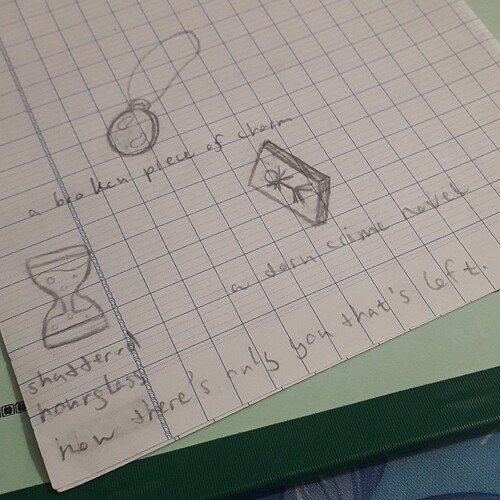 a broken piece of charm
a torn crime novel
shattered
hourglass
now there's only you that's left.